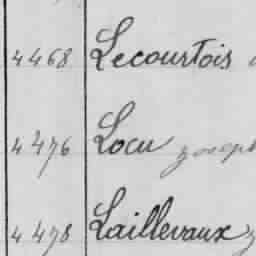 4468 Lecourtois
4476 Locu Joseph
4478 Laillevaux